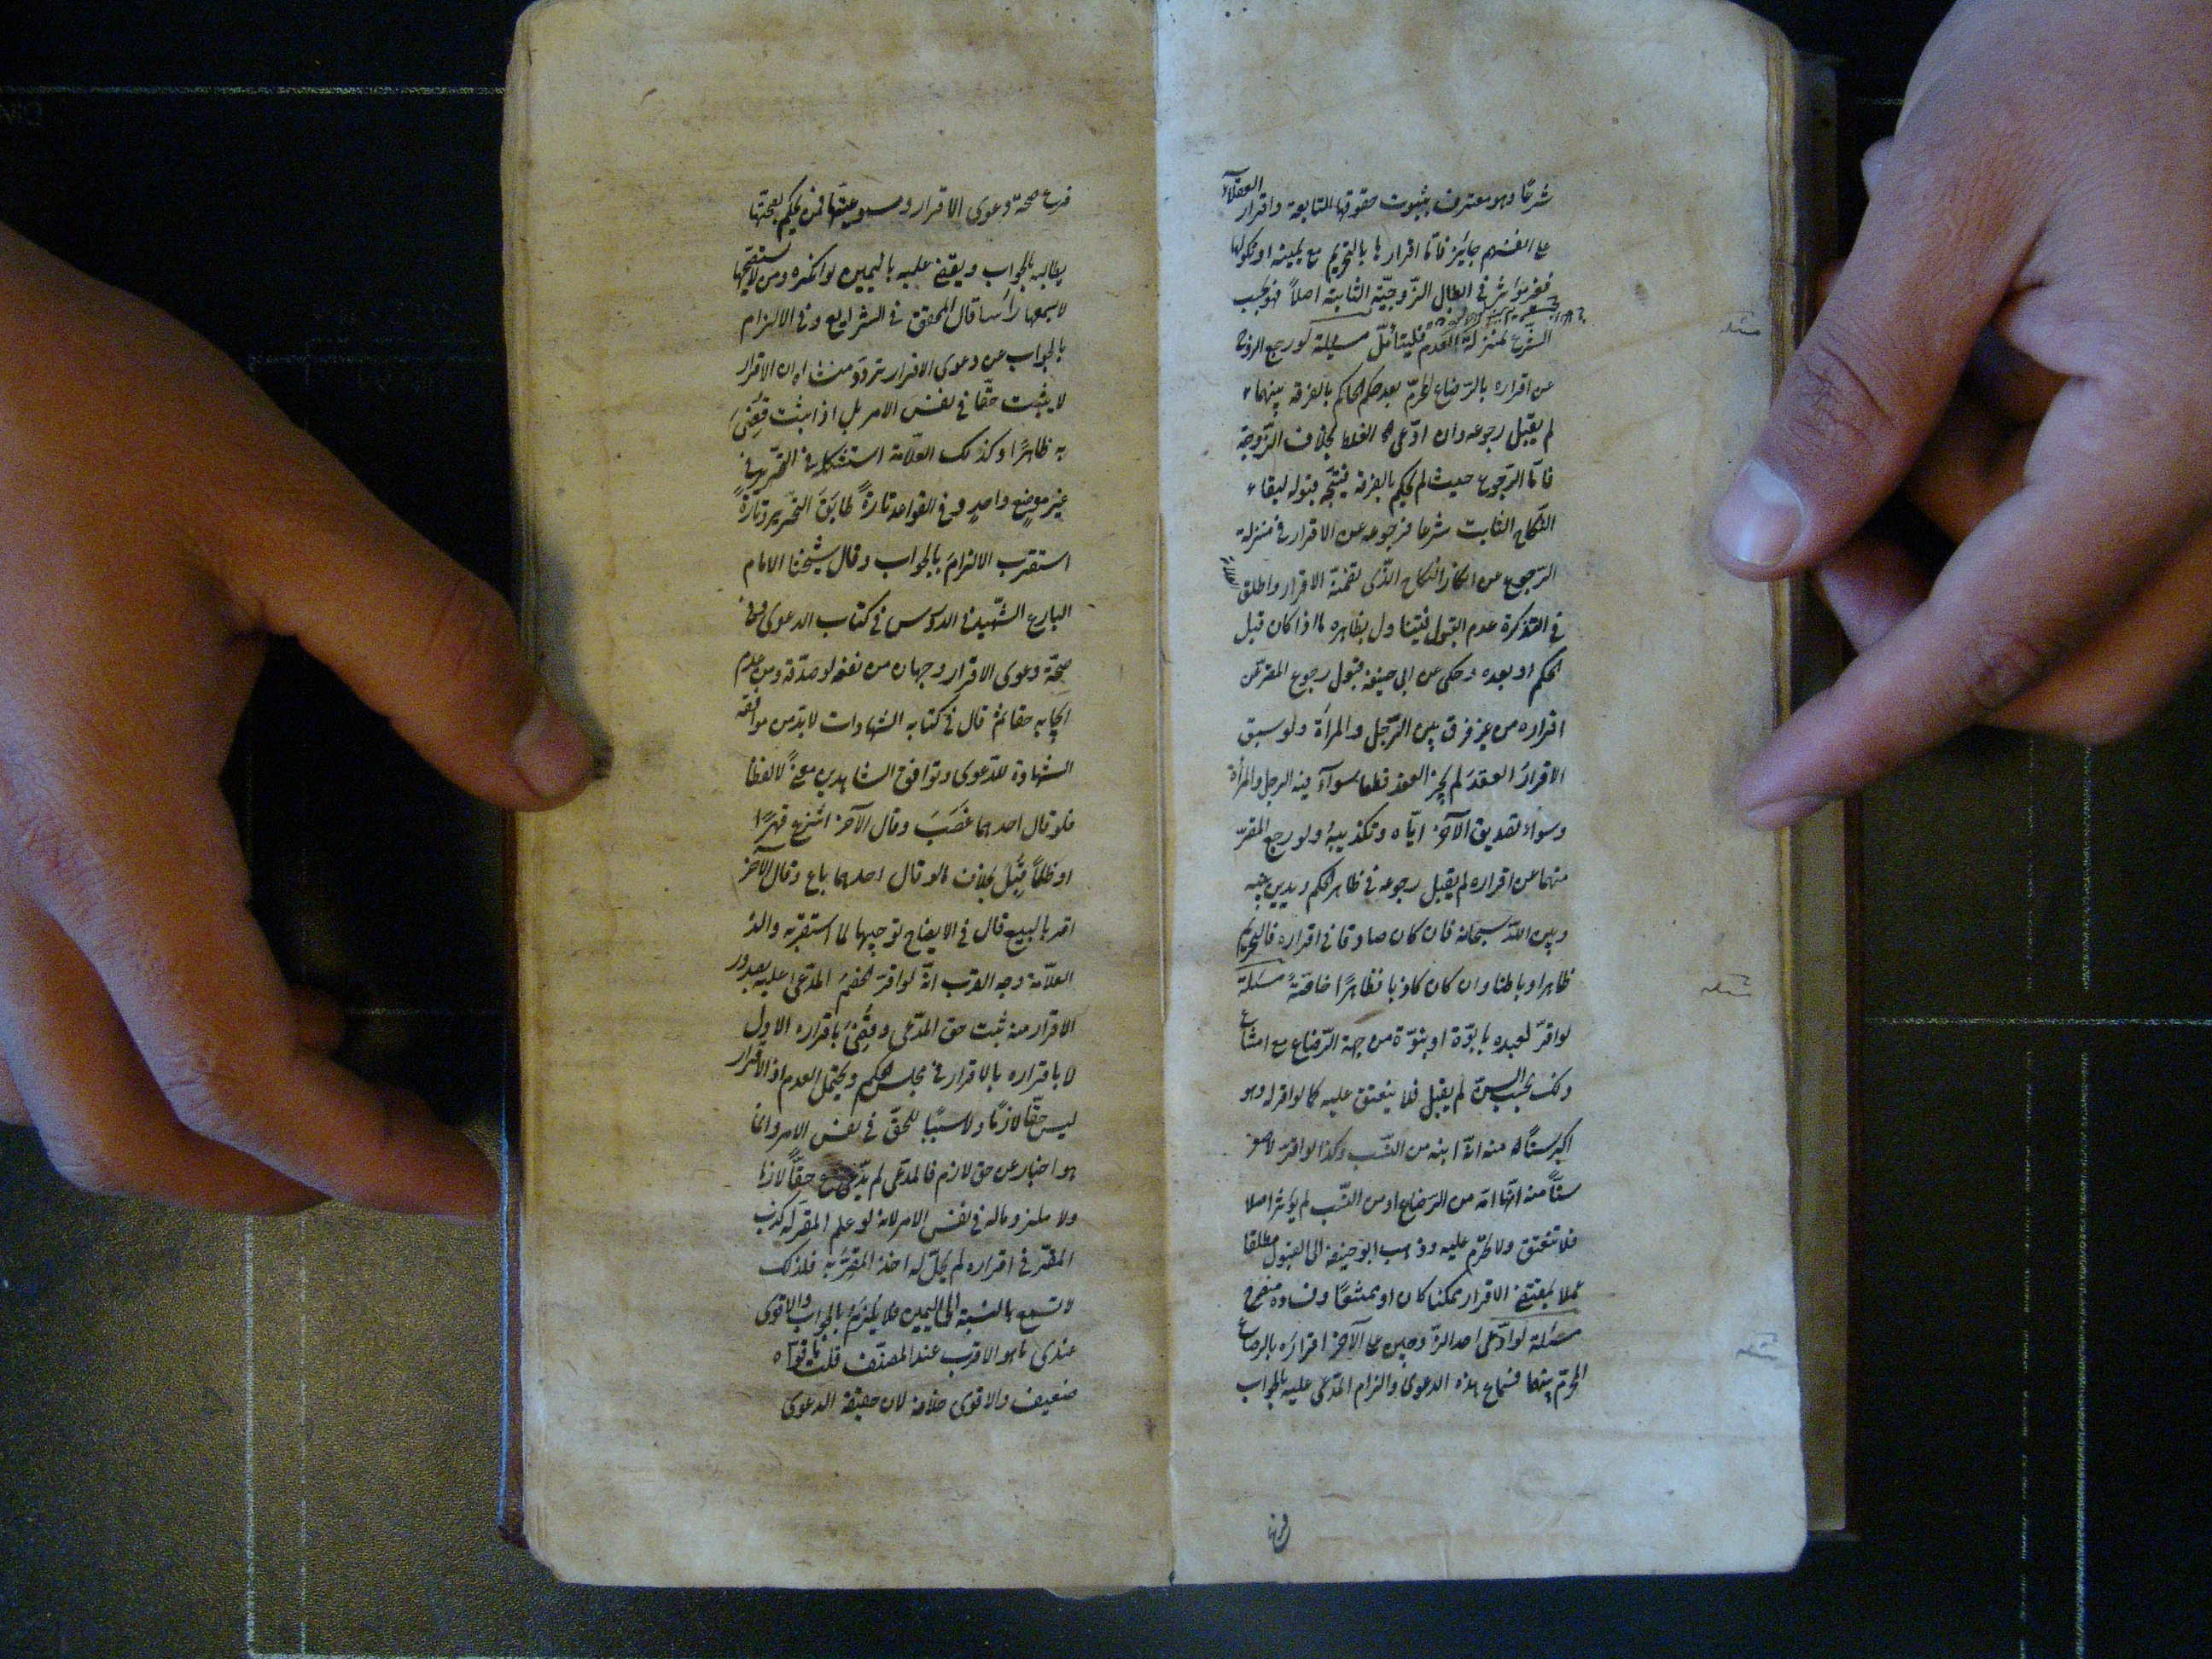 شرعًا وهو معترف بثبوت حقوقها التابعة واقرار العقلاء
على انفسهم جائز فاما اقرارها بالتحريم مع يمينه او نكولها
فغير مؤثر في ابطال الزّوجيّة الثابتة اصلاً فهو بحسب
الشرع بمنزلة العدم فليتأمّل مسئلة لو رجع الزوج
عن اقراره بالرّضاع المحرّم بعد حكم الحاكم بالفرقة بينهما
لم يقبل رجوعه وان ادّعى الغلط بخلاف الزّوجة
فامّا الرّجوع حيث لم يحكم بالفرقة فيتّجه قبوله لبقاء
النّكاح الثابت شرعا فرجوعه عن الاقرار في منزلة
الرّجوع عن انكار النكاح الذّى تضمّنه الاقرار واطلق
في التذكرة عدم القبول فيتناول بظاهره ما اذا كان قبل
الحكم او بعده وحكى عن ابى حنيفة قبول رجوع المقرّ عن
اقراره من غير فرق بين الرّجل والمرأة ولو سبق
الاقرارُ العقدَ لم يجز العقد قطعا سوآءٌ فيه الرجل والمرأة
وسواء تصديق الآخر ايّاه وتكذيبهُ ولو رجع المقرّ
منهما عن اقراره لم يقبل رجوعه في ظاهر الحكم ويدين بينه
وبين اللّه سبحانه فان كان صادقا في اقراره فالتحريم
ظاهرا وباطنا وان كان كاذبا فظاهرًا خاصّةً مسئلة
لو اقرّ لعبده بابوّة او بنوّة من جهة الرّضاع مع امتناع
ذلك بحسب السنّ لم يقبل فلا ينعتق عليه كما لو اقر له وهو
اكبر سنًّا منه انّه ابنه من النّسب وكذا لو اقرّ لاصغر
سنًّا منه انّها امّه من الرّضاع او من النّسب لم يؤثر اصلا
فلا تنعتق ولا تحرّم عليه وذهب ابو حنيفة الى القبول مطلقا
عملا بمقتضى الاقرار ممكنا كان او ممتنعًا وفساده متضح
مسئلة لو ادّعى احد الزّوجين على الآخر اقراره بالرضاع
المحرّم بينهما فسماع هذه الدعوى والزام المدّعى عليه بالجواب
فرع
مسئلة
مسئلة
مسئلة
فرع صحة دعوى الاقرار ومسموعيّتها فمن يحكم بصحّتها
يطالبه بالجواب ويقضى عليه باليمين لو انكره ومن لا يستصحّها
لا يسمعها رأسا قال المحقق في الشرايع وفى الالزام
بالجواب عن دعوى الاقرار تردّد منشاؤه ان الاقرار
لا يثبت حقًّا في نفس الامر بل اذا ثبت قُضِىَ
به ظاهرًا وكذلك العلّامة استشكله في التحرير في
غير موضعٍ واحدٍ وفى القواعد تارةً طابَقَ التحرير وتارةً
استقرب الالزامَ بالجواب وقال شيخنا الامام
البارع الشّهيد في الدروس في كتاب الدعوى وفى
صحّة دعوى الاقرار وجهان من نفعه لو صدّقه ومن عدم
ايجابه حقا ثم قال في كتابه الشهادات لا بدّ من موافقة
الشهادة للدّعوى وتوافق الشاهدين معنىً لا لفظا
فلو قال احدهما غَصَبَ وقال الآخر انتزع قهرًا
او ظلمًا قُبِلَ بخلاف ما لو قال احدهما باع وقال الآخر
اقر بالبيع قال في الايضاح توجيها لما استقربه والده
العلّامة وجه القرب انّه لو اقرّ الخصمُ المدّعى عليه بصدور
الاقرار منه ثبت حق المدّعى وقُضِىَ باقراره الاول
لا باقراره بالاقرار في مجلس الحكم ويحتمل العدم اذ الاقرار
ليس حقًّا لازمًا ولا سببًا للحقّ في نفس الامر وانما
هو اخبار عن حق لازم فالمدّعى لم يدّع حقًّا لازما
ولا ملزوما له في نفس الامر لانه لو علم المقرّ له كذب
المقرّ في اقراره لم يحلّ له اخذ المقرّ به فلذلك
لا تسمع بالنسبة الى اليمين فلا يلزمُ بالجواب والاقوى
عندى ما هو الاقرب عند المصنّف قلت ما قوّاه
ضعيف والاقوى خلافه لان حقيقة الدعوى